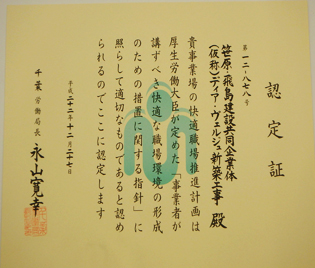 認定証
第一二-八七八号
笹原・飛島建設共同企業体
(仮称)ディア・ヴェルジュ新築工事 殿
貴事業場の快適職場推進計画は
厚生労働大臣が定めた「事業者が
講ずべき快適な職場環境の形成
のための措置に関する指針」に
照らして適切なものであると認め
られるのでここに認定します
平成二十二年十二月二十七日
千葉労働局長 永山寛幸